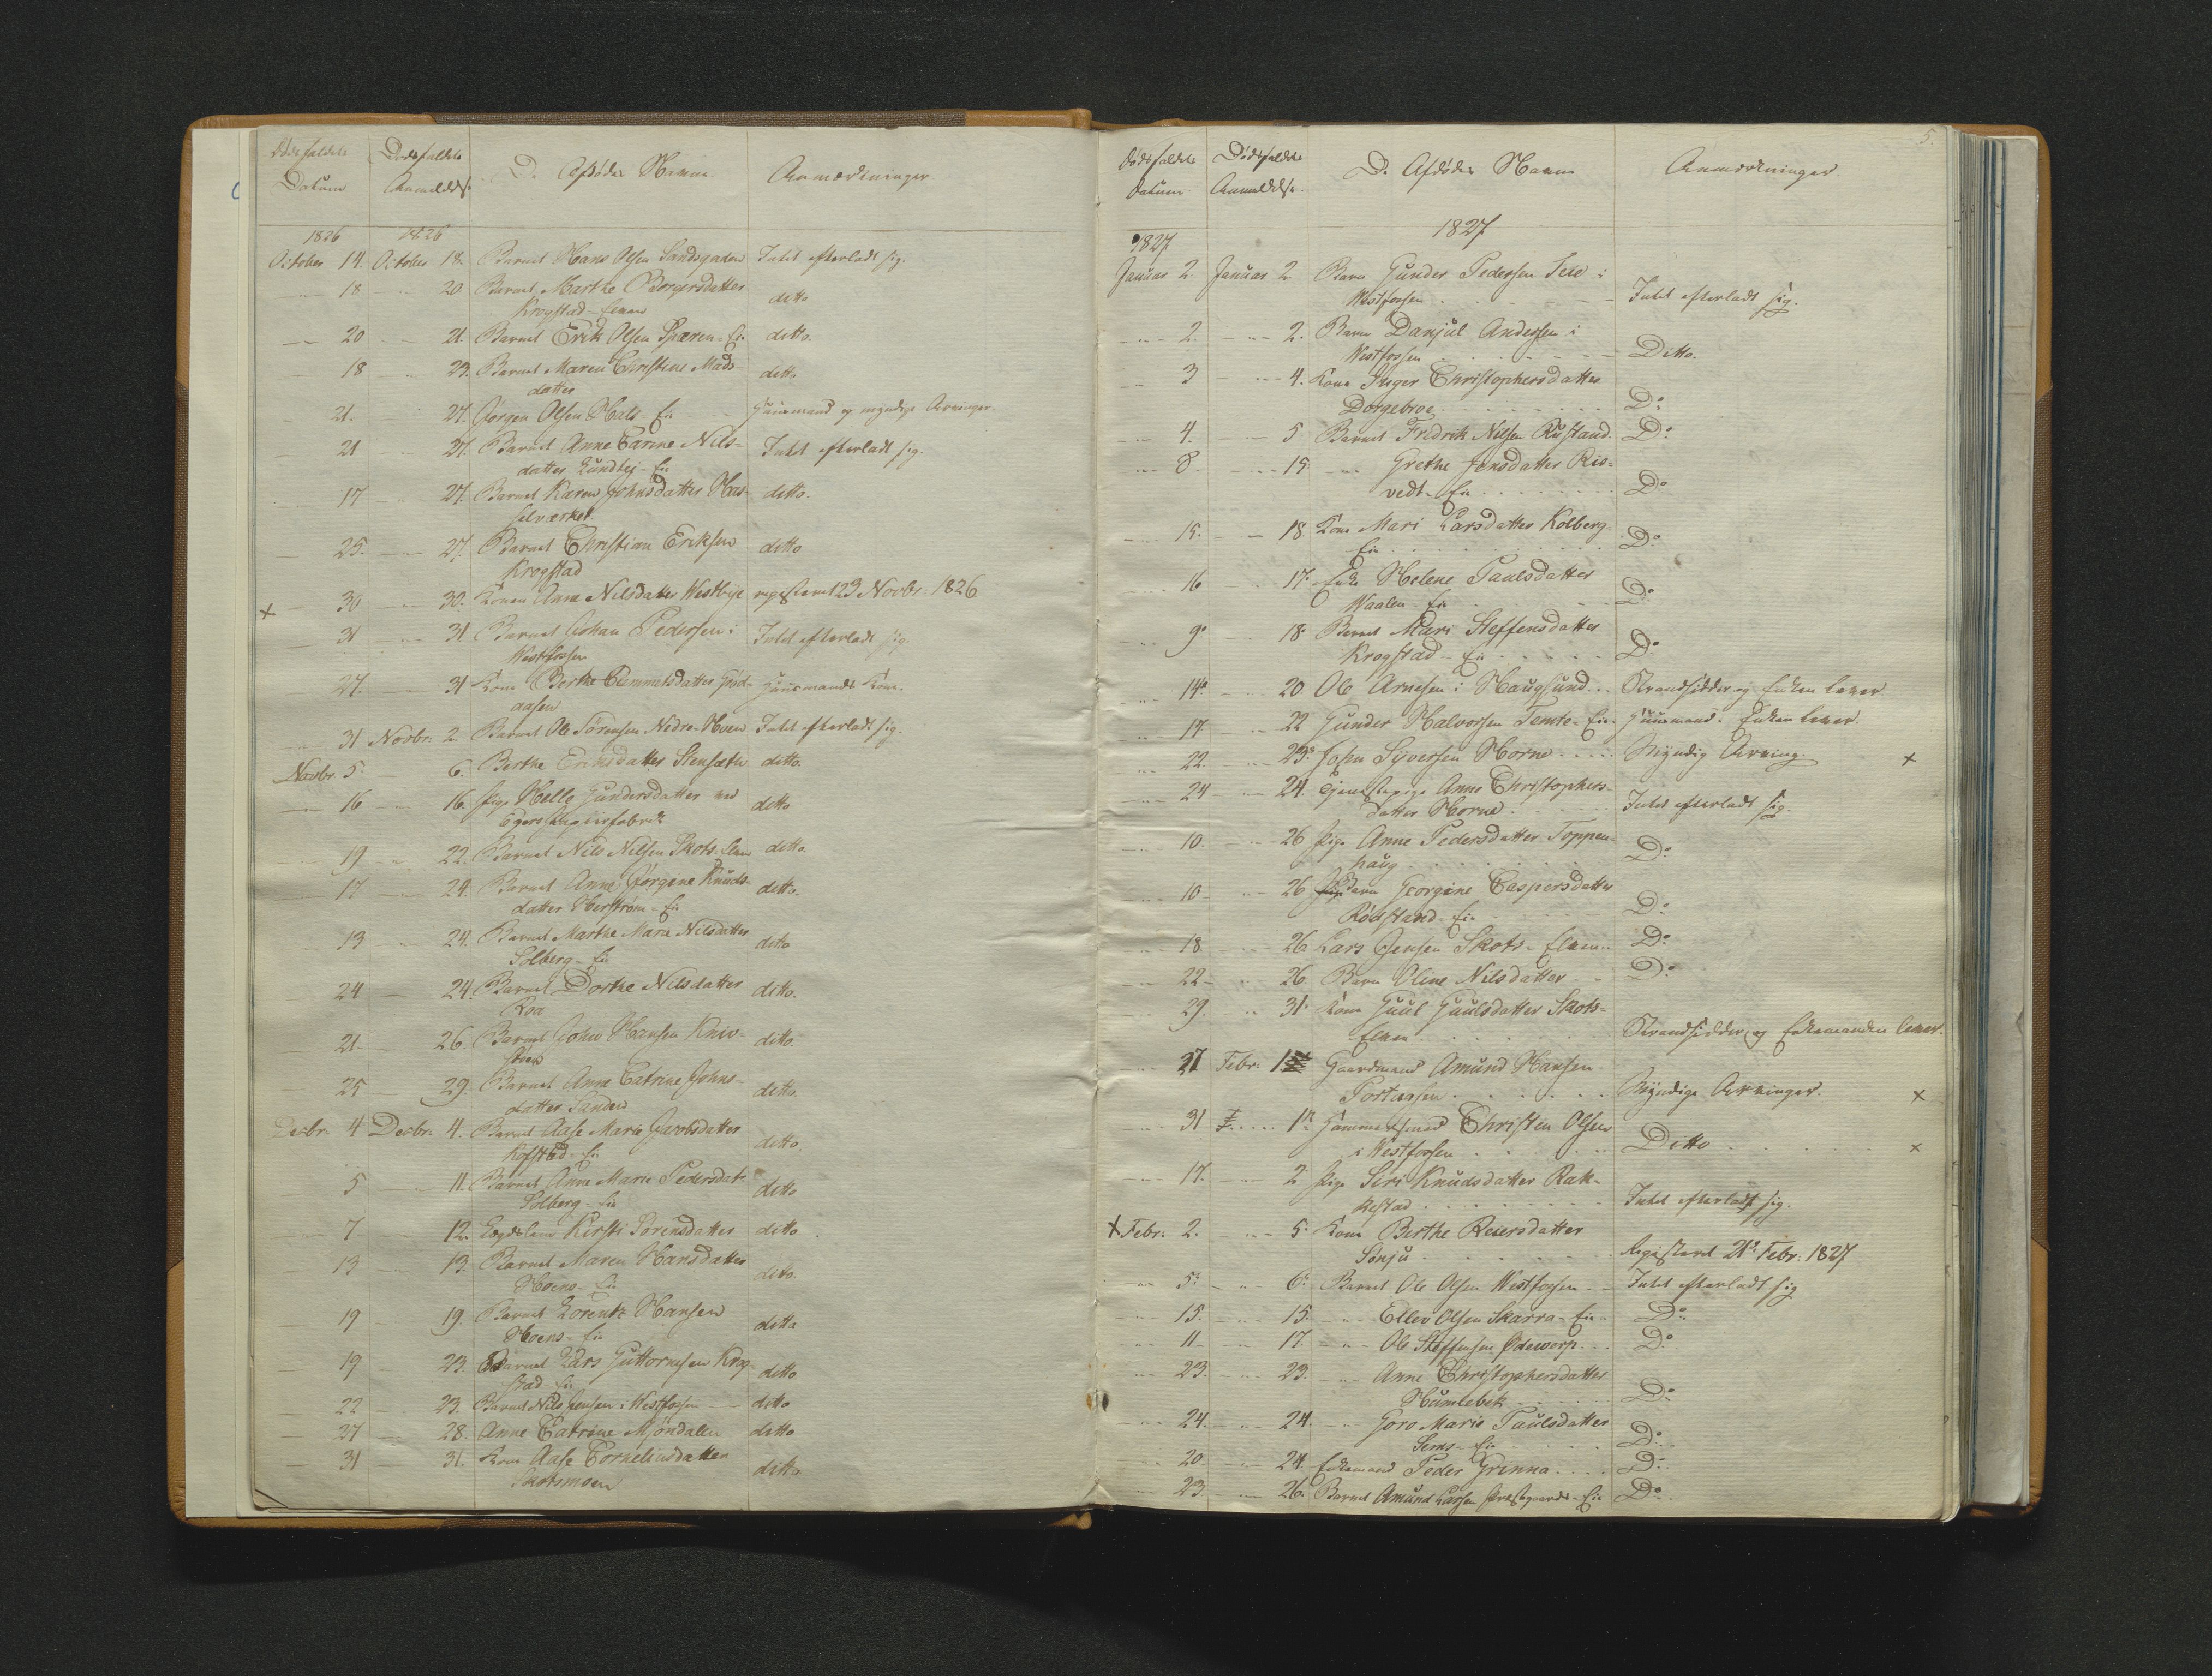 Dødsfaldets Dødsfaldets D. Afdødes Navne. Anmærkninger.
Datum Anmeldelse
1826 1826
October 14. October 18. Barnet Hans Olsen Sandsgaden Intet efterladt sig.
18 20 Barnet Marthe Borgersdatter
Krogstad-Elven ditto
20 21. Barnet Erik Olsen Sparen-Eie ditto.
18 23. Barnet Maren Christine Mads-
datter ditto
21. 27. Jørgen Olsen Hals-Eie Huusmand og myndige Arvinger.
21 27. Barnet Anne Carine Nils-
datter Lundbj-Eie Intet efterladt sig.
17 27. Barnet Karen Johnsdatter Has-
selverket. ditto.
25. 27. Barnet Christian Eriksen
Krogstad ditto
+ 30 30. Konen Anne Nilsdatter Westbye registeret 23 Novbr. 1826
31 31 Barnet Johan Pedersen i
Westfossen Intet efterladt sig.
27. 31 Kone Berthe Gummelsdatter
aasen Huusmands Kone.
31 Novbr. 2. Barnet Ole Sörensen Nedre-Hoen Intet efterladt sig.
Novbr. 5. 6. Berthe Eriksdatter Stensæter ditto.
16 16. Pige Helle Gundersdatter ved
Egers Papiirfabrik ditto
19 22. Barnet Nils Nilsen Skots-Elven ditto.
17 24. Barnet Anne Jørgine Knuds-
datter Herstrøm-Eie ditto.
13 24. Barnet Marthe Marie Nilsdatter
Solberg-Eie ditto
24 24. Barnet Dorthe Nilsdatter
Roa ditto.
21. 26. Barnet John Hansen Kniv-
ditto.
25 29. Barnet Anne Catrine Johns-
datter Sanden ditto.
Decbr. 4 Decbr. 4. Barnet Aase Marie Jacobsdatter
Kofstad-Eie ditto.
5 11. Barnet Anne Marie Pedersdat.
Solberg-Eie ditto
7 12. Lægdslem Kirsti Sörensdatter ditto
13 13. Barnet Maren Hansdatter
Hoens-Eie ditto.
19 19. Barnet Lorentz Hansen
Hoens-Eie ditto
19 23. Barnet Lars Guttormsen Krog-
stad-Eie ditto
22 23. Barnet Nils Jensen i Westfossen ditto
27 28. Anne Catrine Mjøndalen ditto
31 31. Kone Aase Corneliusdatter
Skotsmoen ditto
5.
Dødsfaldets Dødsfaldets D. Afdødes Navne Anmærkninger.
Datum. Anmeldelse.
1827 1827
Januar 2. Januar 2. Barn Gunder Pedersen Teie i
Westfossen Intet efterladt sig.
2. 2. Barn Danjul Andersen i
Westfossen Ditto.
3 4. Kone Inger Christophersdatter
Dorgebroe Do
4. 5 Barnet Fredrik Nilsen Rustand. Do
8. 15. Grethe Jensdatter Ris-
vedt-Eie Do
15. 18. Kone Mari Larsdatter Kolberg-
Eie Do
16 17. Enke Helene Paulsdatter
Waalen Eie Do
9. 18. Barnet Mari Steffensdatter
Krogstad-Eie Do
14. 20 Ole Arnesen i Haugsund Strandsidder og Enken lever.
17 22 Gunder Halvorsen Temte-Eie. Huusmand. Enken lever.
22. 23. John Syversen Horne Myndig Arving. +
24 24. Tjenestepige Anne Christophers-
datter Horne Intet efterladt sig.
10. 26 Pige Anne Pedersdatter Toppen-
haug Do
10 26 Barn Georgine Caspersdatter
Rødstand-Eie Do
18 26 Lars Jensen Skots-Elven Do
22 26 Barn Oline Nilsdatter Do
29. 31. Kone Guul Guulsdatter Skots-
Elven Strandsidder og Enkemanden lever.
27 Febr. 1 Gaardmand Amund Hansen
Portaasen Myndige Arvinger. +
31 1. Hammersmed Christen Olsen
i Westfossen Ditto +
17. 2 Pige Siri Knudsdatter Rak-
kestad Intet efterladt sig.
+ Febr. 2. 5. Kone Berthe Reiersdatter
Sønju Registeret 21. Febr. 1827
5. 6. Barnet Ole Olsen Westfossen Intet efterladt sig
15. 15. Ellev Olsen Skarra-Eie Do
11 17 Ole Steffensen Ødeworp Do
23. 23. Anne Christophersdatter
Humlebek Do
24. 24. Goro Marie Paulsdatter
Sems-Eie Do
20. 24. Enkemand Peder Grinna Do
23 26. Barnet Amund Larsen Præstegaards-Eie Do